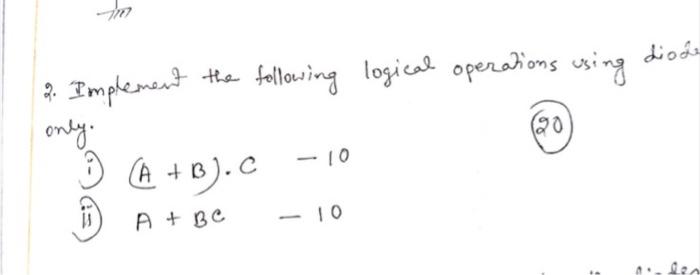 2. Implement the following logical operations using diode
only.
20
i) (A + B).C - 10
ii) A + BC - 10